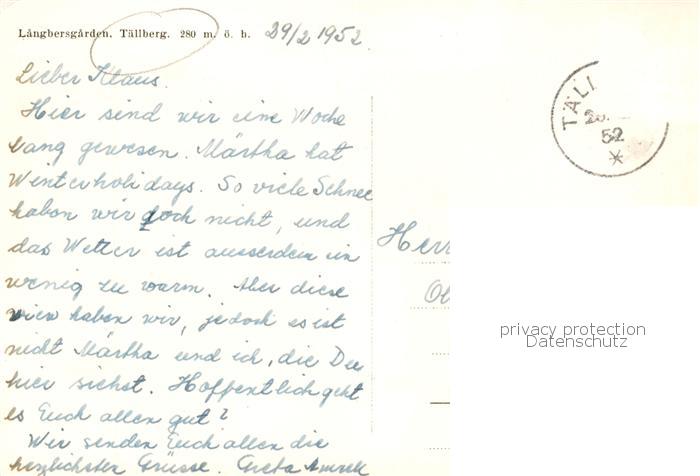 Långbersgården. Tällberg. 280 m. ö. h. 29/2 1952.
Lieber Klaus.
Hier sind wir eine Woche
lang gewesen. Märtha hat
Winterholidays. So viele Schnee
haben wir doch nicht, und
das Wetter ist ausserdem ein
wenig zu warm. Aber diese
view haben wir, jedoch es ist
nicht Märtha und ich, die Du
hier siehst. Hoffentlich geht
es Euch allen gut?
Wir senden Euch allen die
herzlichsten Grüsse. Greta
TÄLL
52
Herr
privacy protection
Datenschutz